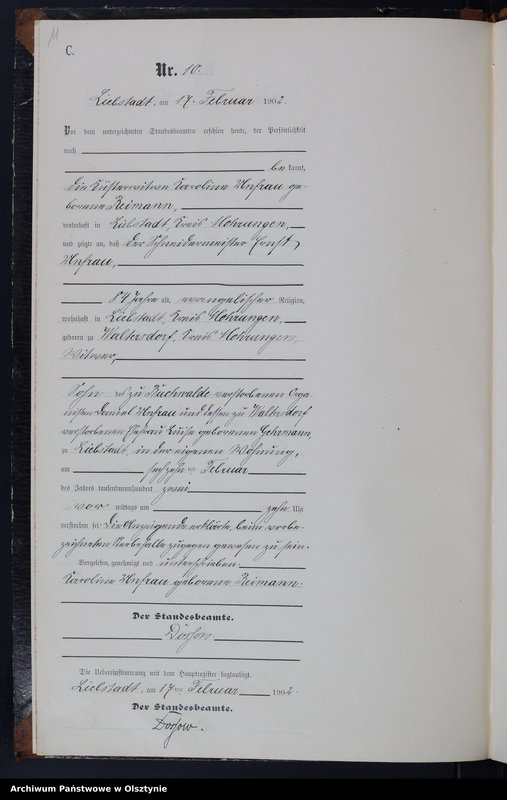 11
C.
Nr. 10.
Liebstadt, am 17. Februar 1902.
Vor dem unterzeichneten Standesbeamten erschien heute, der Persönlichkeit
nach
bekannt,
die Küsterwitwe Karoline Unfrau ge-
borene Reimann,
wohnhaft in Liebstadt, Kreis Mohrungen,
und zeigte an, daß der Schneidermeister Ernst
Unfrau,
81 Jahre alt, evangelischer Religion,
wohnhaft in Liebstadt, Kreis Mohrungen,
geboren zu Waltersdorf, Kreis Mohrungen,
Witwer,
Sohn des zu Buchwalde verstorbenen Orga-
nisten Daniel Unfrau und dessen zu Waltersdorf
verstorbenen Ehefrau Luise geborenen Gehrmann,
zu Liebstadt, in der eigenen Wohnung,
am sechzehnten Februar
des Jahres tausend neunhundert zwei
vor mittags um zehn Uhr
verstorben sei. Die Anzeigende erklärte, beim vorbe-
zeichneten Sterbefalle zugegen gewesen zu sein.
Vorgelesen, genehmigt und unterschrieben
Karoline Unfrau geborene Reimann.
Der Standesbeamte.
Dossow
Die Uebereinstimmung mit dem Hauptregister beglaubigt.
Liebstadt, am 17ten Februar 1902.
Der Standesbeamte.
Dossow.
Archiwum Państwowe w Olsztynie